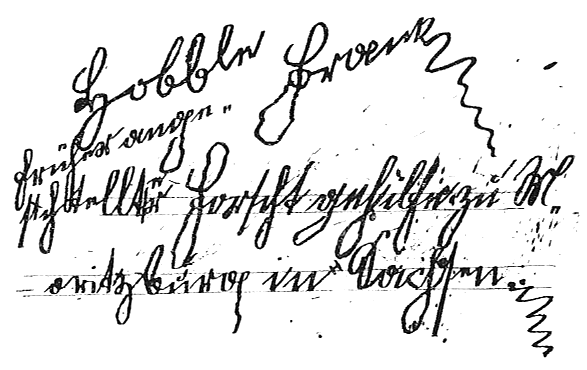 Hobble Frank
früher ange=
schtellter Forscht gehülfe zu M=
oritzburg in Sachsen.